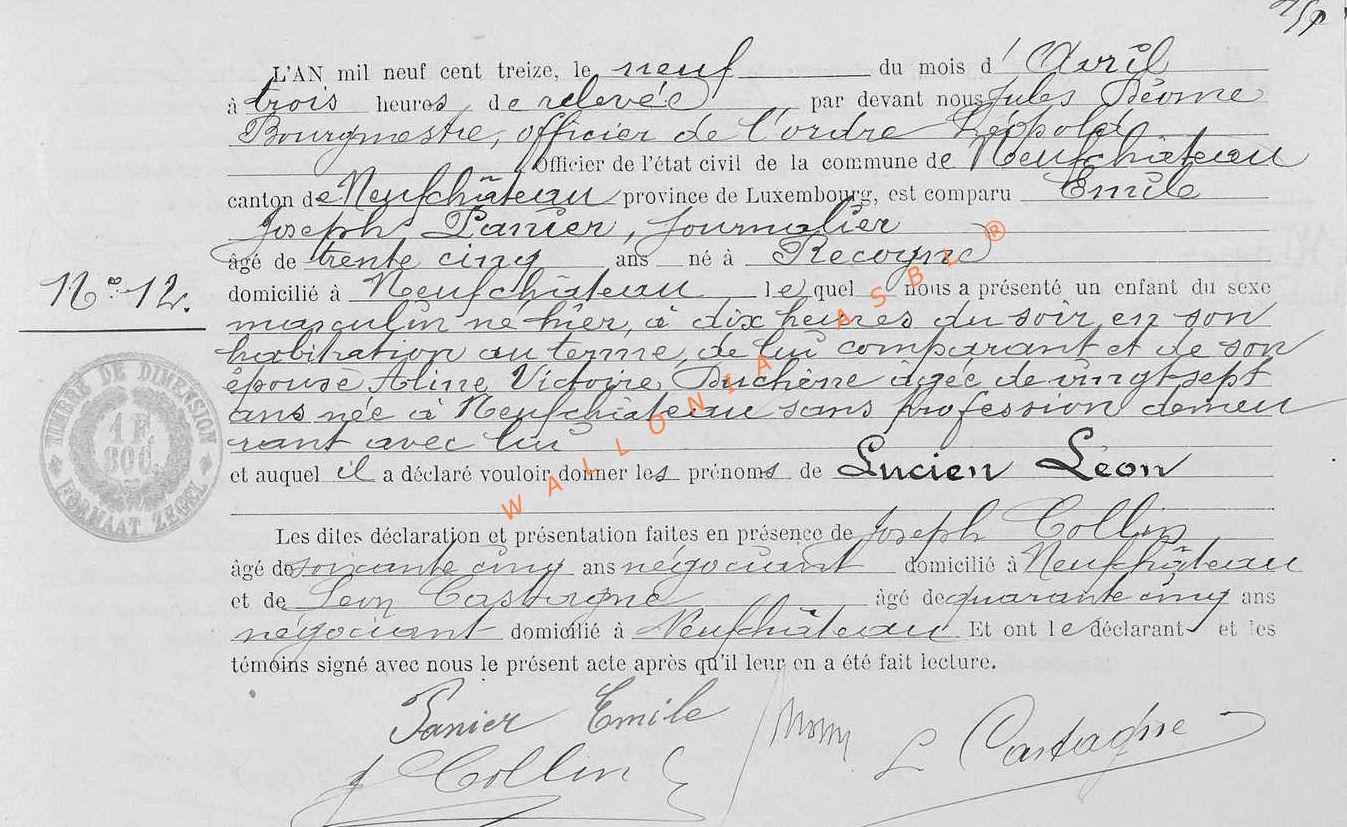 L'AN mil neuf cent treize, le neuf du mois d'Avril
à trois heures de relevée par devant nous Jules
Bourgmestre, officier de l'ordre Léopold
Officier de l'état civil de la commune de Neufchâteau
canton de Neufchâteau province de Luxembourg, est comparu Emile
Joseph Panier, Journalier
âgé de trente cinq ans né à Recogne
N° 12.
domicilié à Neufchâteau lequel nous a présenté un enfant du sexe
masculin né hier, à dix heures du soir, en son
habitation au terme, de lui comparant et de son
épouse Aline Victoire Duchêne agée de vingt sept
ans née à Neufchâteau sans profession demeu
rant avec lui
et auquel il a déclaré vouloir donner les prénoms de Lucien Léon
TIMBRE DE DIMENSION
1 F.
80C.
FORMAAT ZEGEL
Les dites déclaration et présentation faites en présence de Joseph Collin
âgé de soixante cinq ans négociant domicilié à Neufchâteau
et de Léon Castagne âgé de quarante cinq ans
négociant domicilié à Neufchâteau Et ont le déclarant et les
témoins signé avec nous le présent acte après qu'il leur en a été fait lecture.
Panier Emile
L Castagne
J Collin
WALLONIA ASBL ®